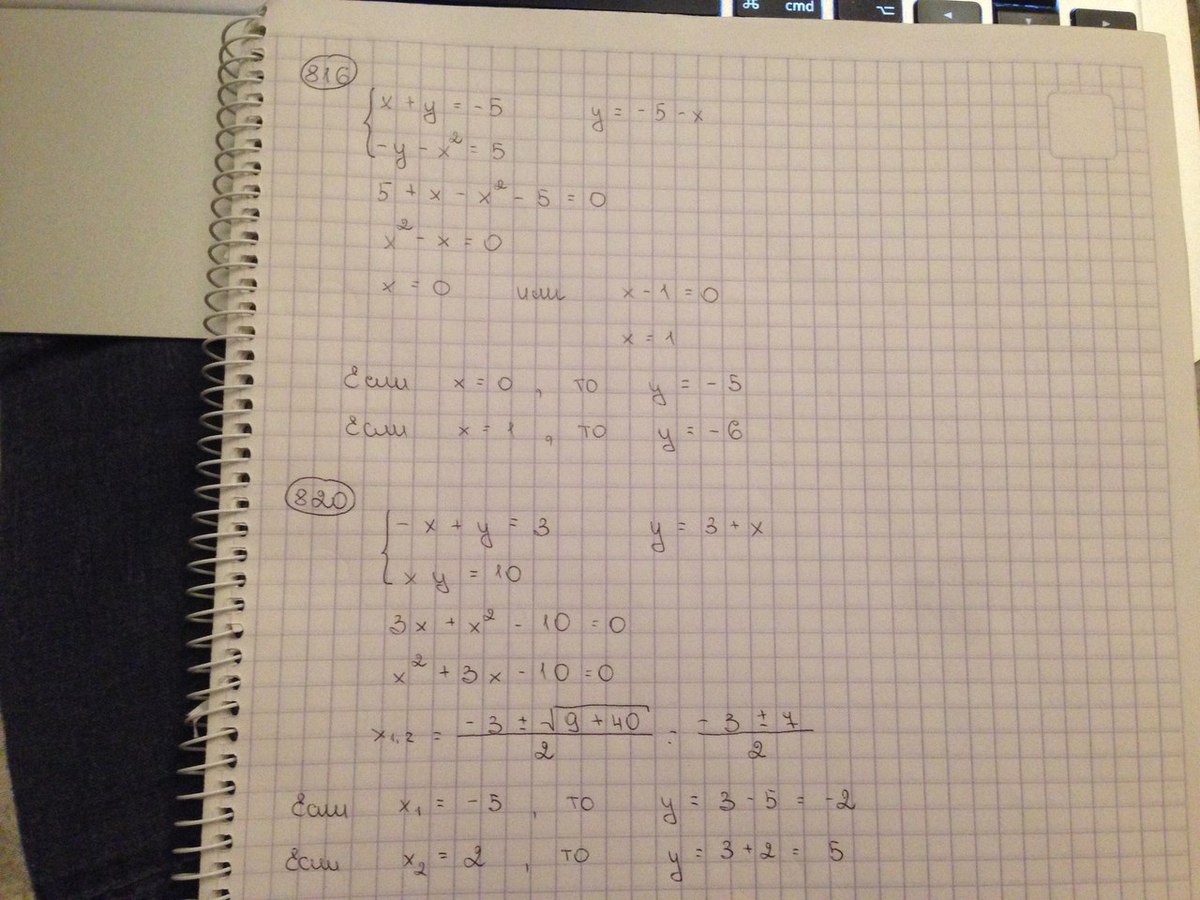 ⌘ cmd ⌥ ◄ ▼ ►
816
x + y = -5 y = -5 - x
-y - x² = 5
5 + x - x² - 5 = 0
x² - x = 0
x = 0 или x - 1 = 0
x = 1
Если x = 0, то y = -5
Если x = 1, то y = -6
820
-x + y = 3 y = 3 + x
xy = 10
3x + x² - 10 = 0
x² + 3x - 10 = 0
x₁,₂ = (-3 ± √(9 + 40))/2 = (-3 ± 7)/2
Если x₁ = -5, то y = 3 - 5 = -2
Если x₂ = 2, то y = 3 + 2 = 5